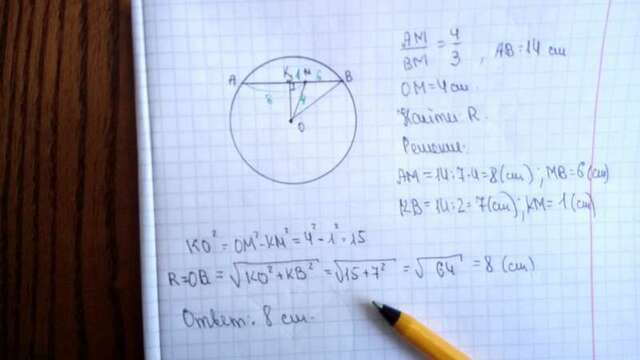 AM/BM = 4/3, AB = 14 см
OM = 4 см.
Найти R.
Решение.
AM = 14:7·4 = 8 (см); MB = 6 (см)
KB = 14:2 = 7 (см); KM = 1 (см)
A K 1 M 6 B
8 4
O
KO² = OM² - KM² = 4² - 1² = 15
R = OB = √KO² + KB² = √15 + 7² = √64 = 8 (см)
Ответ: 8 см.